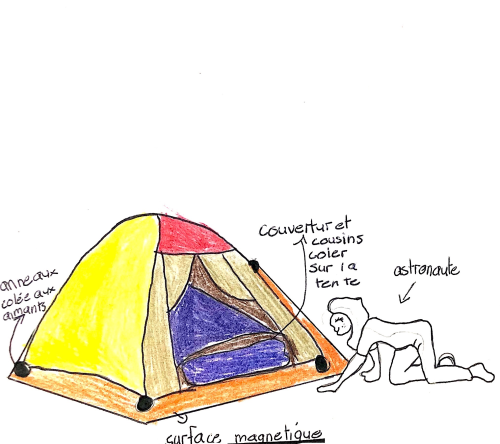 couvertur et
cousins
coler
sur la
tente
astronaute
anneaux
colée aux
aimants
surface magnetique